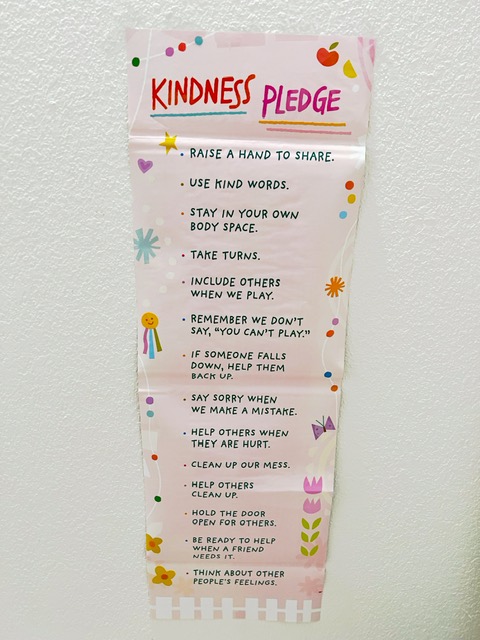 KINDNESS PLEDGE
• RAISE A HAND TO SHARE.
• USE KIND WORDS.
• STAY IN YOUR OWN
BODY SPACE.
• TAKE TURNS.
• INCLUDE OTHERS
WHEN WE PLAY.
• REMEMBER WE DON'T
SAY, "YOU CAN'T PLAY."
• IF SOMEONE FALLS
DOWN, HELP THEM
BACK UP.
• SAY SORRY WHEN
WE MAKE A MISTAKE.
• HELP OTHERS WHEN
THEY ARE HURT.
• CLEAN UP OUR MESS.
• HELP OTHERS
CLEAN UP.
• HOLD THE DOOR
OPEN FOR OTHERS.
• BE READY TO HELP
WHEN A FRIEND
NEEDS IT.
• THINK ABOUT OTHER
PEOPLE'S FEELINGS.